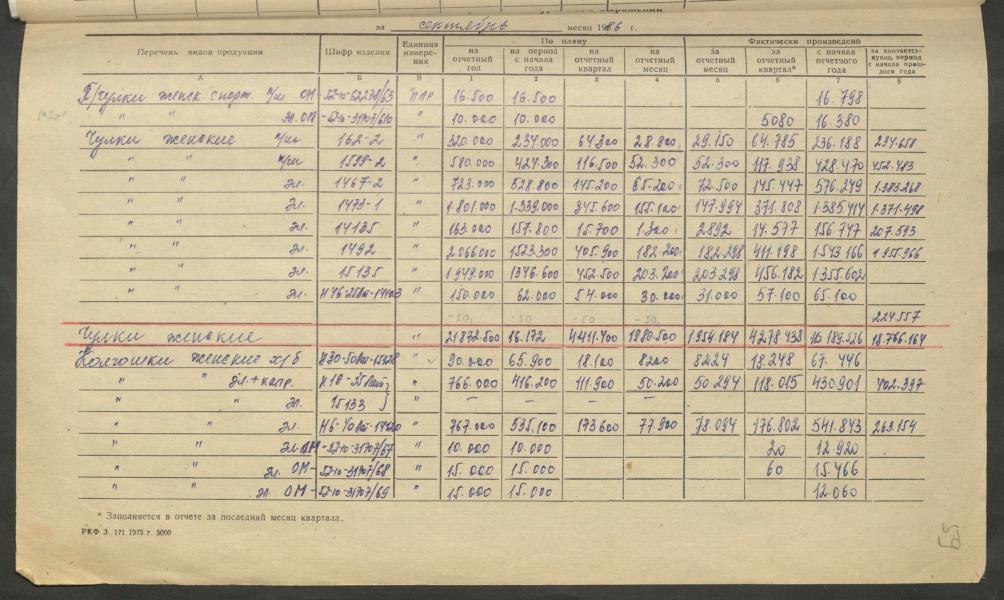 за сентябрь месяц 1986 г.
Перечень видов продукции | Шифр изделия | Единица измерения | По плану | Фактически произведено
на отчетный год | на период с начала года | на отчетный квартал | на отчетный месяц | за отчетный месяц | за отчетный квартал* | с начала отчетного года | за соответствующ. период с начала прошлого года
А | Б | В | 1 | 2 | 3 | 4 | 5 | 6 | 7 | 8
П/чулки женск. спорт. п/ш ОМ | -52-10-52270/63 | пар | 16.500 | 16.500 | 16.798
" " эл. ОМ | -52-10-31707/610 | " | 10.000 | 10.000 | 5080 | 16.380
Чулки женские п/ш | 162-2 | " | 320.000 | 234.000 | 64.300 | 28.900 | 29.150 | 64.785 | 236.188 | 234.658
" " п/ш | 1599-2 | " | 580.000 | 424.300 | 116.500 | 52.300 | 52.300 | 117.938 | 428.470 | 452.483
" " эл. | 1467-2 | " | 723.000 | 528.800 | 145.200 | 65.200 | 72.500 | 145.447 | 576.249 | 1.383.268
" " эл. | 1473-1 | " | 1.801.000 | 1.339.000 | 345.600 | 155.100 | 147.994 | 371.808 | 1.385.414 | 1.371.498
" " эл. | 14135 | " | 163.000 | 157.800 | 15.700 | 1.300 | 2892 | 14.577 | 156.747 | 207.593
" " эл. | 1492 | " | 2.066.000 | 1.523.300 | 405.900 | 182.200 | 182.298 | 411.198 | 1.543.166 | 1.255.966
" " эл. | 15135 | " | 1.949.000 | 1346.600 | 452.500 | 203.200 | 203.298 | 456.182 | 1.355.602
" " эл. | " | 150.000 | 62.000 | 54.000 | 30.000 | 31.000 | 57.100 | 65.100
-50, | -50 | -50 | -50, | 224.557
Чулки женские | " | 21872.500 | 16.172 | 4411.700 | 1980.500 | 1954.184 | 4278.438 | 16.189.526 | 18.766.164
Колготки женские х/б | " | 90.000 | 65.900 | 18.100 | 8200 | 8424 | 18.248 | 67.446
" " эл+капр. | " | 766.000 | 416.200 | 111.900 | 50.200 | 50.294 | 118.015 | 430.901 | 402.397
" " эл. | 15133 | " | — | — | — | —
" " эл. | " | 767.000 | 535.100 | 173600 | 77.900 | 78.094 | 176.802 | 541.843 | 263.154
" " эл. ОМ | -52-10-31707/67 | " | 10.000 | 10.000 | 20 | 12.920
" " эл. ОМ | -52-10-31707/68 | " | 15.000 | 15.000 | 60 | 15.466
" " эл. ОМ | -52-10-31707/69 | " | 15.000 | 15.000 | 12.060
* Заполняется в отчете за последний месяц квартала.
РКФ З. 171 1975 г. 5000
59